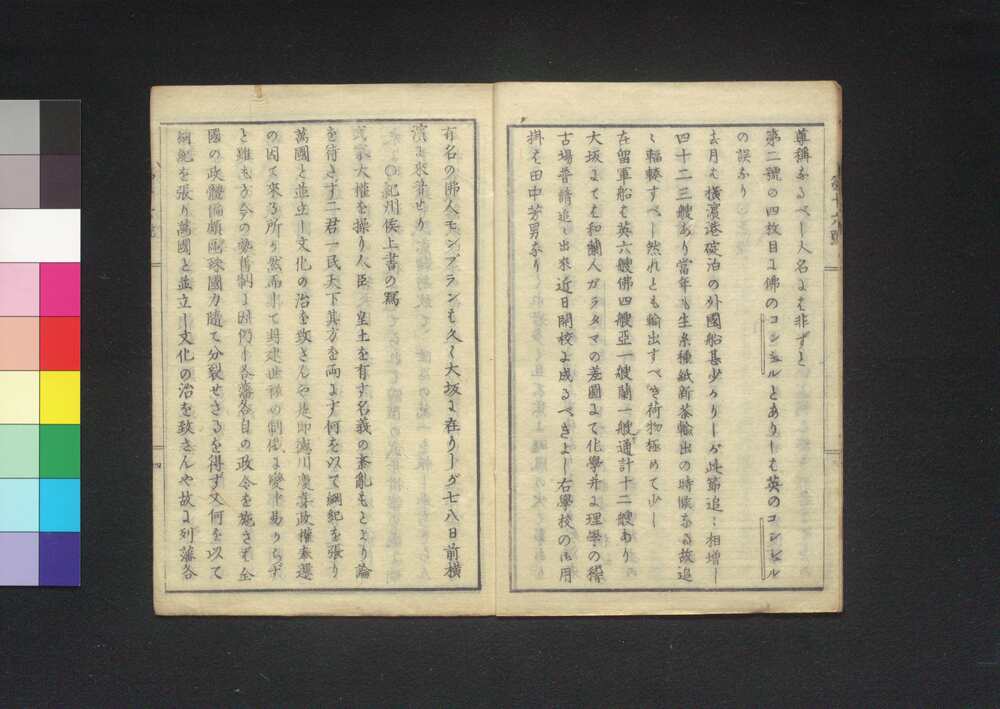 尊稱なるべし人名には非ずと
第二號の四枚目に佛のコンシユルとありしは英のコンシユル
の誤なり
去月は橫濱港碇泊の外國船甚少かりしが此節追々相增し
四十二三艘あり當年も生糸種紙新茶輸出の時候なる故追
々輻輳すべし然れとも輸出すべき荷物極めて少し
在留軍船は英六艘佛四艘亞一艘蘭一艘通計十二艘あり
大坂にては和蘭人ガラタマの差圖にて化學并に理學の傳
古場普請追々出來近日開校に成るべきよし右學校の御用
掛は田中芳男なり
有名の佛人モンブランも久く大坂に在りしが七八日前橫
濱に來着せり
〇紀州侯上書の寫
大權を操り人臣皇土を有す名義の紊亂もとより論
を待さす二君一民天下其方を両にす何を以て綱紀を張り
萬國と並立し文化の治を致さんや是即德川慶喜政權奉還
の因て來る所り然而して封建世祿の制俄に變易
と雖も方今の勢舊制に因仍し各藩各自の政令を施さは全
國の政體偏頗國力隨て分裂せさるを得ず又何を以て
綱紀を張り萬國と並立し文化の治を致さんや故に列藩各